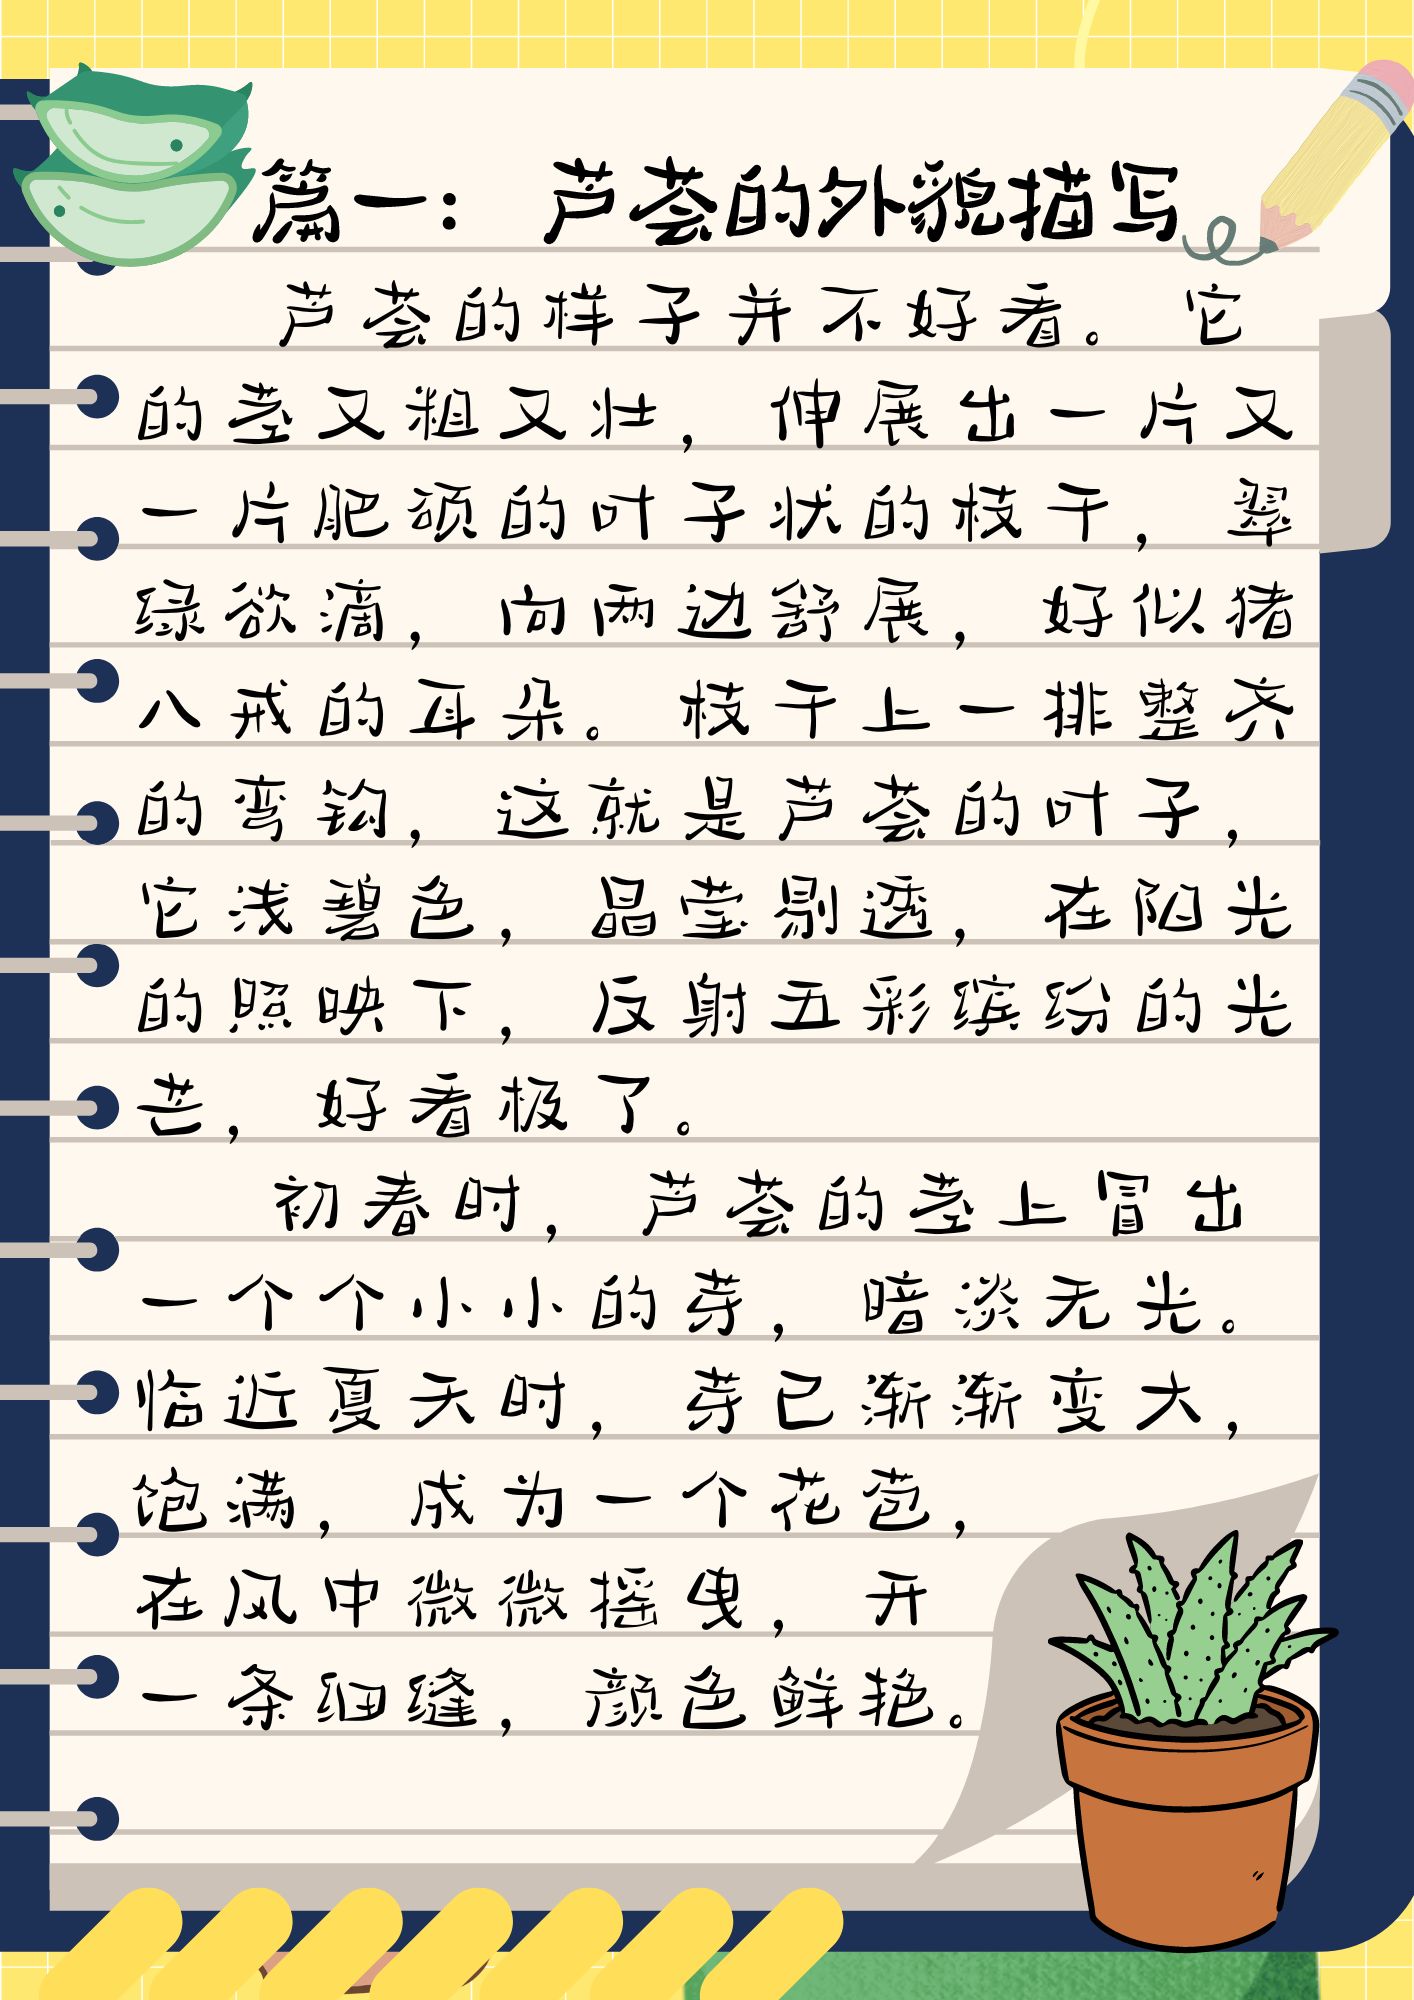 篇一： 芦荟的外貌描写
芦荟的样子并不好看。 它
的茎又粗又壮， 伸展出一片又
一片肥硕的叶子状的枝干， 翠
绿欲滴， 向两边舒展， 好似猪
八戒的耳朵。 枝干上一排整齐
的弯钩， 这就是芦荟的叶子，
它浅碧色， 晶莹剔透， 在阳光
的照映下， 反射五彩缤纷的光
芒， 好看极了。
初春时， 芦荟的茎上冒出
一个个小小的芽， 暗淡无光。
临近夏天时， 芽已渐渐变大，
饱满， 成为一个花苞，
在风中微微摇曳， 开
一条细缝， 颜色鲜艳。